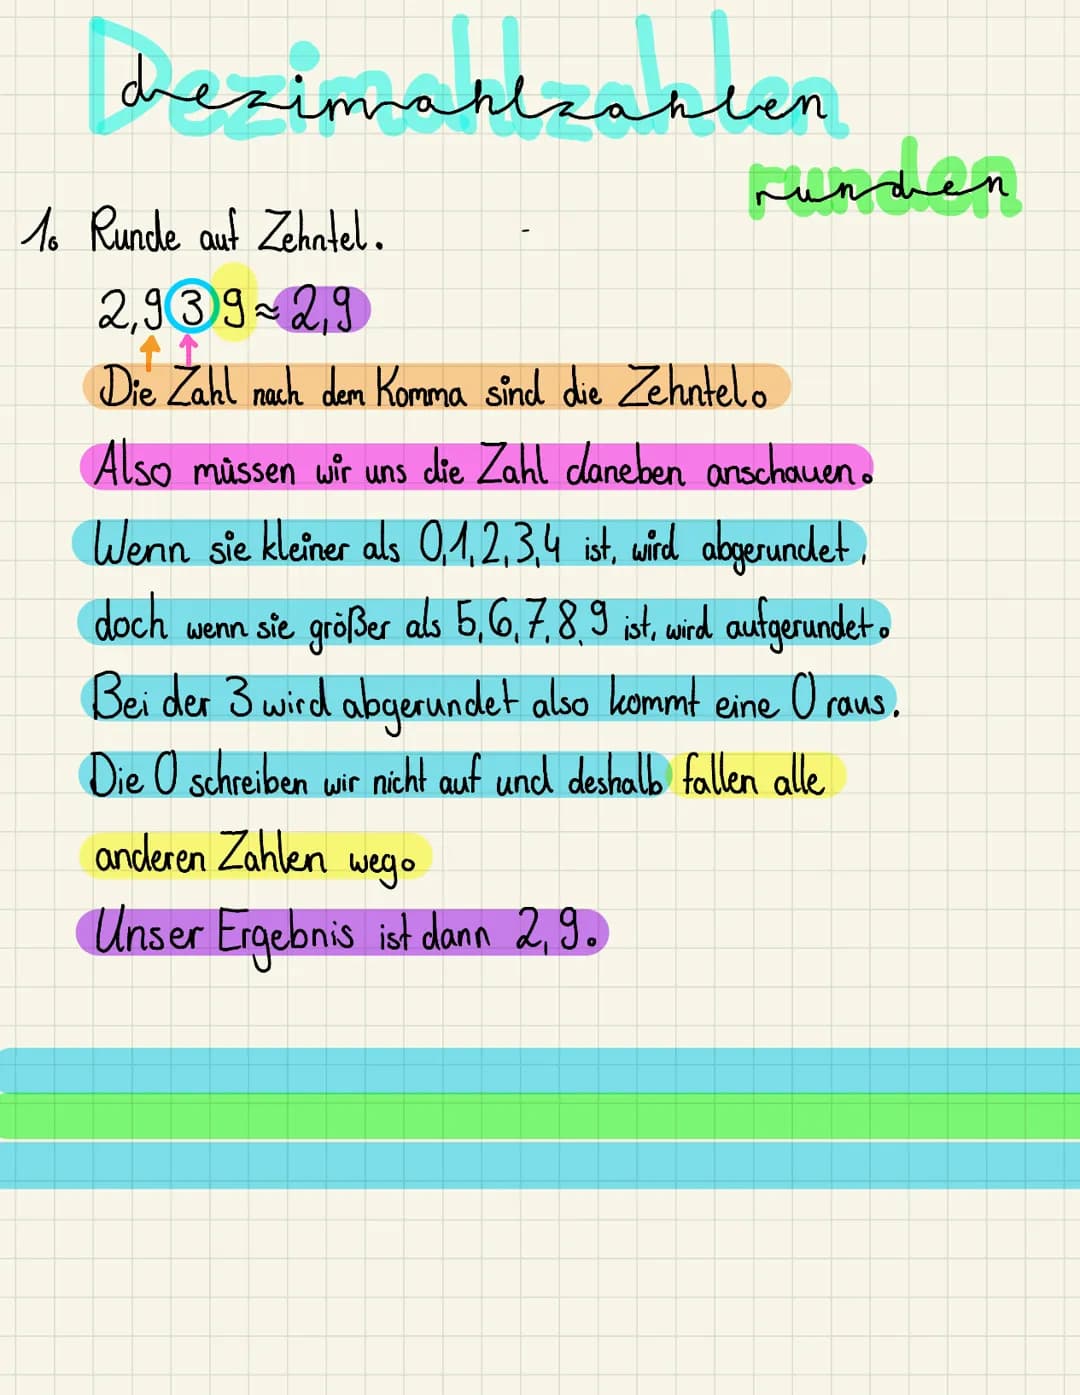 Dezimahlzahlen
dezimahlzahlen
runden
1. Runde auf Zehntel.
2,939≈2,9
Die Zahl nach dem Komma sind die Zehntel.
Also müssen wir uns die Zahl daneben anschauen.
Wenn sie kleiner als 0,1,2,3,4 ist, wird abgerundet,
doch wenn sie größer als 5,6,7,8,9 ist, wird aufgerundet.
Bei der 3 wird abgerundet also kommt eine 0 raus.
Die 0 schreiben wir nicht auf und deshalb fallen alle
anderen Zahlen weg.
Unser Ergebnis ist dann 2,9.